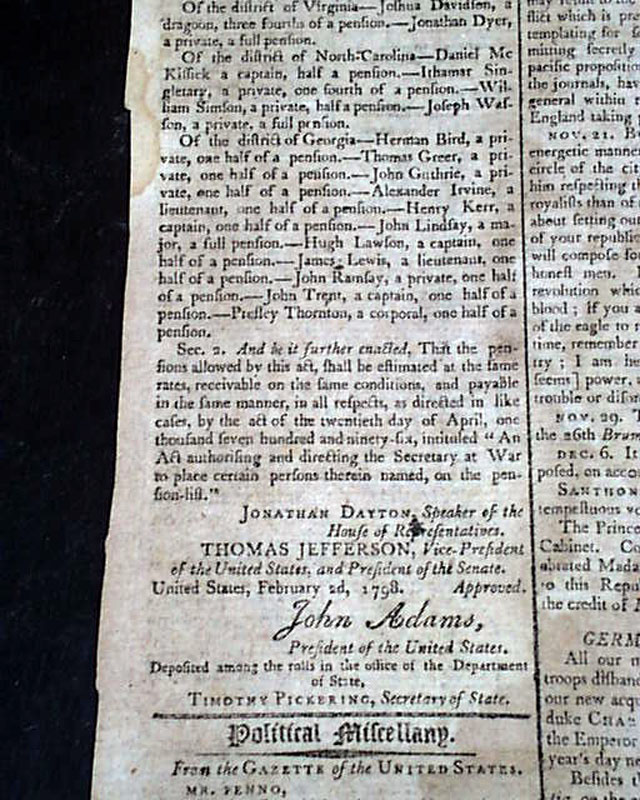 Of the district of Virginia—Joshua Davidson, a
dragoon, three fourths of a pension.—Jonathan Dyer,
a private, a full pension.
Of the district of North-Carolina—Daniel Mc
Kiſſick a captain, half a penſion.—Ithamar Sin-
gletary, a private, one fourth of a penſion.—Wil-
liam Simſon, a private, half a penſion.—Joseph Waſ-
ſon, a private, a full penſion.
Of the diſtrict of Georgia—Herman Bird, a pri-
vate, one half of a penſion.—Thomas Greer, a pri-
vate, one half of a penſion.—John Guthrie, a pri-
vate, one half of a penſion.—Alexander Irvine, a
lieutenant, one half of a penſion.—Henry Kerr, a
captain, one half of a penſion.—John Lindſay, a ma-
jor, a full penſion.—Hugh Lawſon, a captain, one
half of a penſion.—James Lewis, a lieutenant, one
half of a penſion.—John Ramſay, a private, one half
of a penſion.—John Trent, a captain, one half of a
penſion.—Preſley Thornton, a corporal, one half of a
penſion.
Sec. 2. And be it further enacted, That the pen-
ſions allowed by this act, ſhall be eſtimated at the ſame
rates, receivable on the ſame conditions, and payable
in the ſame manner, in all reſpects, as directed in like
caſes, by the act of the twentieth day of April, one
thouſand ſeven hundred and ninety-ſix, intituled "An
Act authoriſing and directing the Secretary at War
to place certain perſons therein named, on the pen-
ſion-liſt."
JONATHAN DAYTON, Speaker of the
Houſe of Repreſentatives.
THOMAS JEFFERSON, Vice-Preſident
of the United States, and Preſident of the Senate.
United States, February 2d, 1798. Approved.
John Adams,
Preſident of the United States.
Depoſited among the rolls in the office of the Department
of State,
TIMOTHY PICKERING, Secretary of State.
Political Miſcellany.
From the GAZETTE of the UNITED STATES.
MR. FENNO,
flict which is pre
templating for
mitting ſecretly
pacific propoſition
the journals, hav
general within
England taking
NOV. 21.
energetic manner
circle of the cit
him reſpecting
royaliſts than of
about ſetting out
of your republic
will compoſe
honeſt men.
revolution whic
blood; if you a
of the eagle to
time, remember
try; I am he
ſeems] power,
trouble or
NOV. 29.
the 26th Brum
DEC. 6. It
poſed, on
tempeſtuous
The Prince
Cabinet. Co
Mada
to this Repu
the credit of
GERM
All our
troops diſband
our new acqu
duke CHA
the Emperor
year's day ne
Beſides